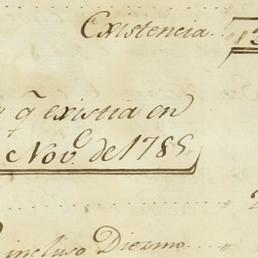 Existencia.
q̃ existia en
Nov.e de 1785
incluso Diezmo